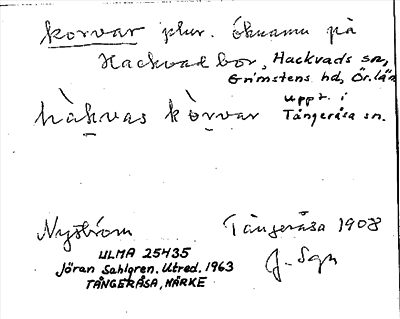 korvar plur. öknamn på
Hackvadbor, Hackvads sn,
Grimstens hd, Ör. län
hàkvas kòrvar uppt. i
Tångeråsa sn.
Nyström Tångeråsa 1908
ULMA 25435 J. Sgn
Jöran Sahlgren. Utred. 1963
TÅNGERÅSA, NÄRKE